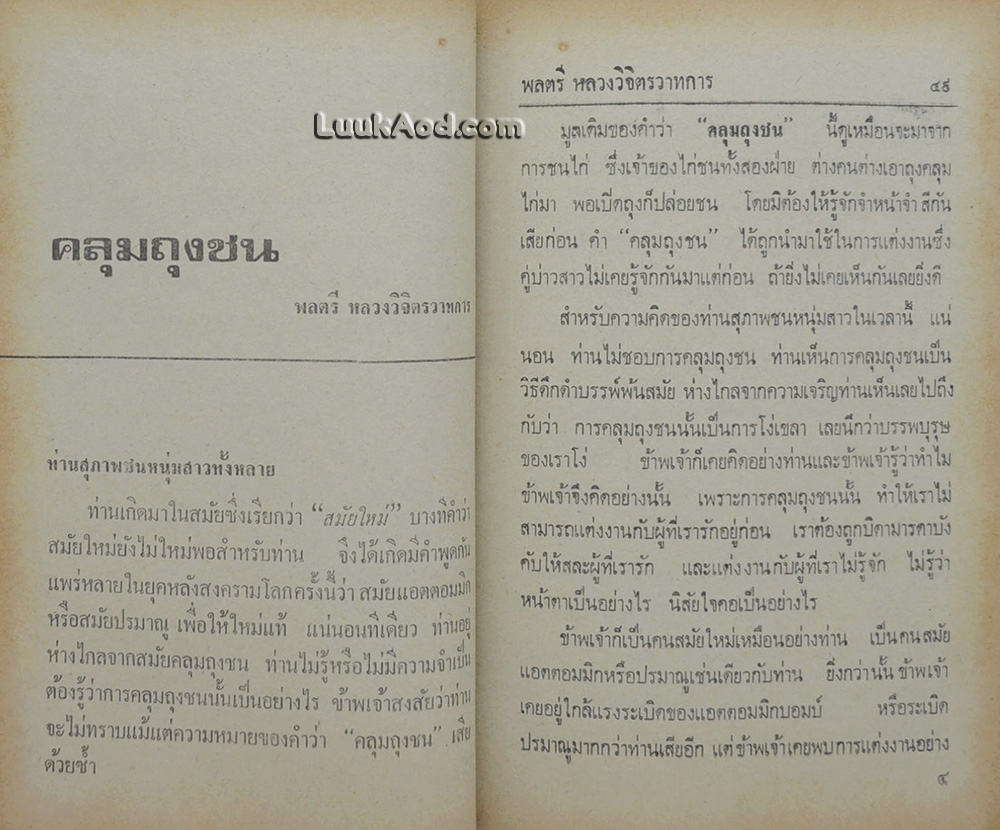 LuukAod.com
คลุมถุงชน
พลตรี หลวงวิจิตรวาทการ
ท่านสุภาพชนหนุ่มสาวทั้งหลาย
ท่านเกิดมาในสมัยซึ่งเรียกว่า “สมัยใหม่” บางทีคำว่า
สมัยใหม่ยังไม่ใหม่พอสำหรับท่าน จึงได้เกิดมีคำพูดกัน
แพร่หลายในยุคหลังสงครามโลกครั้งนี้ว่า สมัยแอตตอมมิก
หรือสมัยปรมาณู เพื่อให้ใหม่แท้ แน่นอนทีเดียว ท่านอยู่
ห่างไกลจากสมัยคลุมถุงชน ท่านไม่รู้หรือไม่มีความจำเป็น
ต้องรู้ว่าการคลุมถุงชนนั้นเป็นอย่างไร ข้าพเจ้าสงสัยว่าท่าน
จะไม่ทราบแม้แต่ความหมายของคำว่า “คลุมถุงชน” เสีย
ด้วยซ้ำ
พลตรี หลวงวิจิตรวาทการ
๔๙
มูลเดิมของคำว่า “คลุมถุงชน” นี้ดูเหมือนจะมาจาก
การชนไก่ ซึ่งเจ้าของไก่ชนทั้งสองฝ่าย ต่างคนต่างเอาถุงคลุม
ไก่มา พอเปิดถุงก็ปล่อยชน โดยมิต้องให้รู้จักจำหน้าจำสีกัน
เสียก่อน คำ “คลุมถุงชน” ได้ถูกนำมาใช้ในการแต่งงานซึ่ง
คู่บ่าวสาวไม่เคยรู้จักกันมาแต่ก่อน ถ้ายิ่งไม่เคยเห็นกันเลยยิ่งดี
สำหรับความคิดของท่านสุภาพชนหนุ่มสาวในเวลานี้ แน่
นอน ท่านไม่ชอบการคลุมถุงชน ท่านเห็นการคลุมถุงชนเป็น
วิธีดึกดำบรรพ์พ้นสมัย ห่างไกลจากความเจริญท่านเห็นเลยไปถึง
กับว่า การคลุมถุงชนนั้นเป็นการโง่เขลา เลยนึกว่าบรรพบุรุษ
ของเราโง่ ข้าพเจ้าก็เคยคิดอย่างท่านและข้าพเจ้ารู้ว่าทำไม
ข้าพเจ้าจึงคิดอย่างนั้น เพราะการคลุมถุงชนนั้น ทำให้เราไม่
สามารถแต่งงานกับผู้ที่เรารักอยู่ก่อน เราต้องถูกบิดามารดาบัง
คับให้สละผู้ที่เรารัก และแต่งงานกับผู้ที่เราไม่รู้จัก ไม่รู้ว่า
หน้าตาเป็นอย่างไร นิสัยใจคอเป็นอย่างไร
ข้าพเจ้าก็เป็นคนสมัยใหม่เหมือนอย่างท่าน เป็นคนสมัย
แอตตอมมิกหรือปรมาณูเช่นเดียวกับท่าน ยิ่งกว่านั้น ข้าพเจ้า
เคยอยู่ใกล้แรงระเบิดของแอตตอมมิกบอมบ์ หรือระเบิด
ปรมาณูมากกว่าท่านเสียอีก แต่ข้าพเจ้าเคยพบการแต่งงานอย่าง
๔